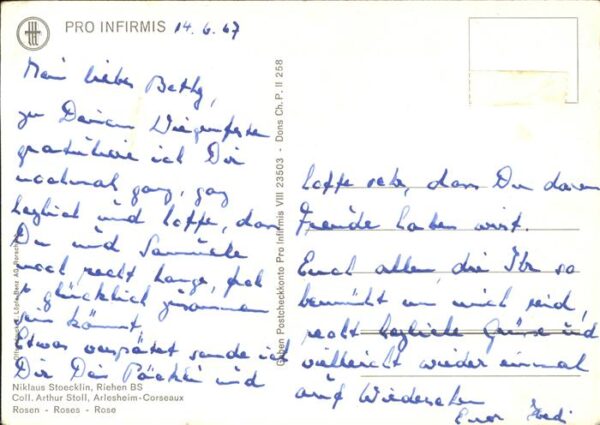 PRO INFIRMIS 14.6.67
Mein lieber Bethy,
zu Deinem Wiegenfeste
gratuliere ich Dir
nochmal ganz, ganz
herzlich und hoffe, dass
Du und
noch recht lange,
so glücklich zusammen
sein könnt.
Etwas verspätet sende ich
Dir Dein Päckli und
Niklaus Stoecklin, Riehen BS
Coll. Arthur Stoll, Arlesheim-Corseaux
Rosen - Roses - Rose
Gaben Postcheckkonto Pro Infirmis VIII 23503 - Dons Ch. P. II 258
hoffe sehr, dass Du daran
Freude haben wirst.
Euch allen, die Ihr so
bemüht um mich seid,
recht herzliche Grüsse und
vielleicht wieder einmal
auf Wiedersehen
Eure Hedi